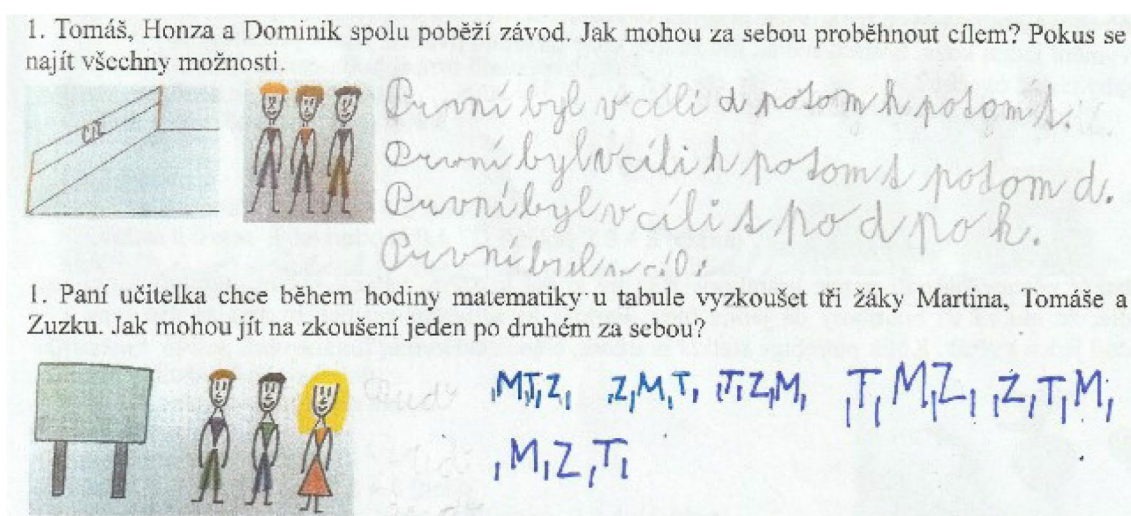 1. Tomáš, Honza a Dominik spolu poběží závod. Jak mohou za sebou proběhnout cílem? Pokus se
najít všechny možnosti.
CÍL
První byl v cíli d potom h potom t.
První byl v cíli h potom t potom d.
První byl v cíli t po d po h.
První byl v cíli
1. Paní učitelka chce během hodiny matematiky u tabule vyzkoušet tři žáky Martina, Tomáše a
Zuzku. Jak mohou jít na zkoušení jeden po druhém za sebou?
,M,T,Z, ,Z,M,T, ,T,Z,M, ,T,M,Z, ,Z,T,M,
,M,Z,T,